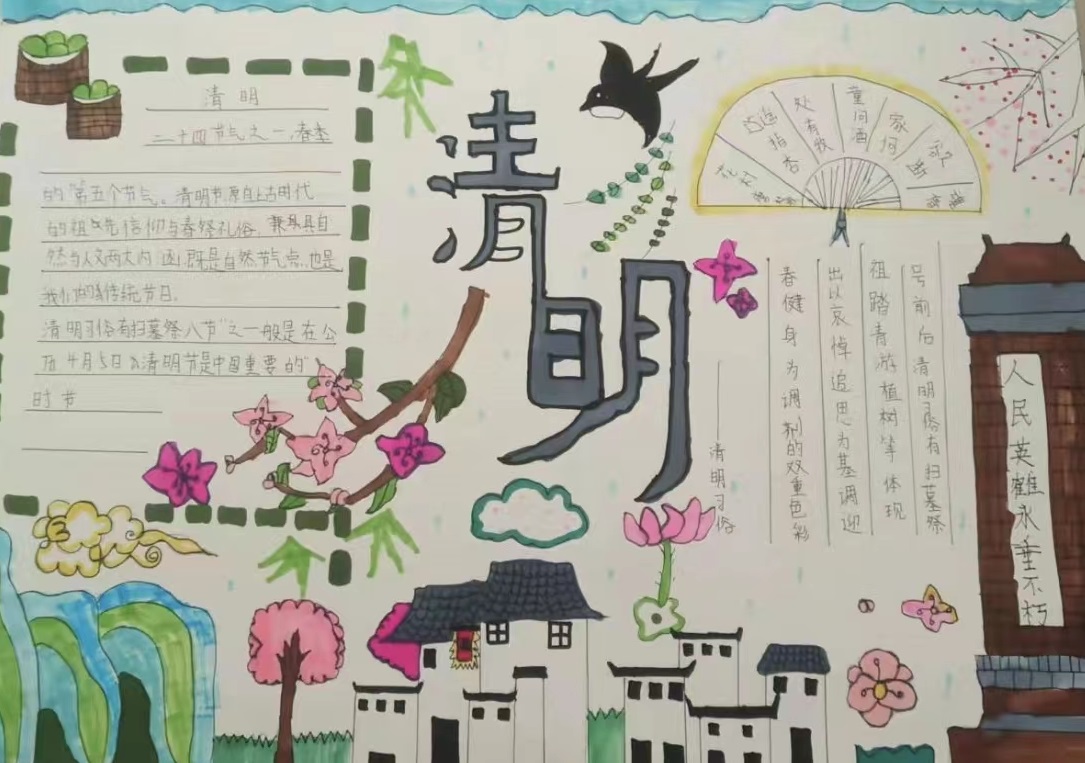 清明
清明
二十四节气之一,春季
的第五个节气。清明节原自上古时代
的祖先信仰与春祭礼俗,兼具自
然与人文两大内涵,既是自然节气点,也是
我们的传统节日,
清明习俗有扫墓祭八节"之一般是在公
历4月5日 清明节是中国重要的"
时节
遥指杏
处有牧
童问酒
家何
欲断
号前后清明习俗有扫墓祭
祖踏青游植树等体现
出以哀悼追思为基调迎
春健身为调剂的双重色彩
——清明习俗
人民英雄永垂不朽